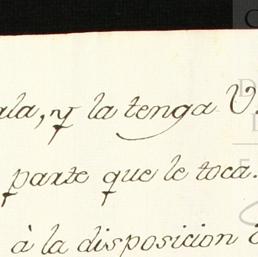 ala, y la tenga V.
parte que le toca.
à la disposicion